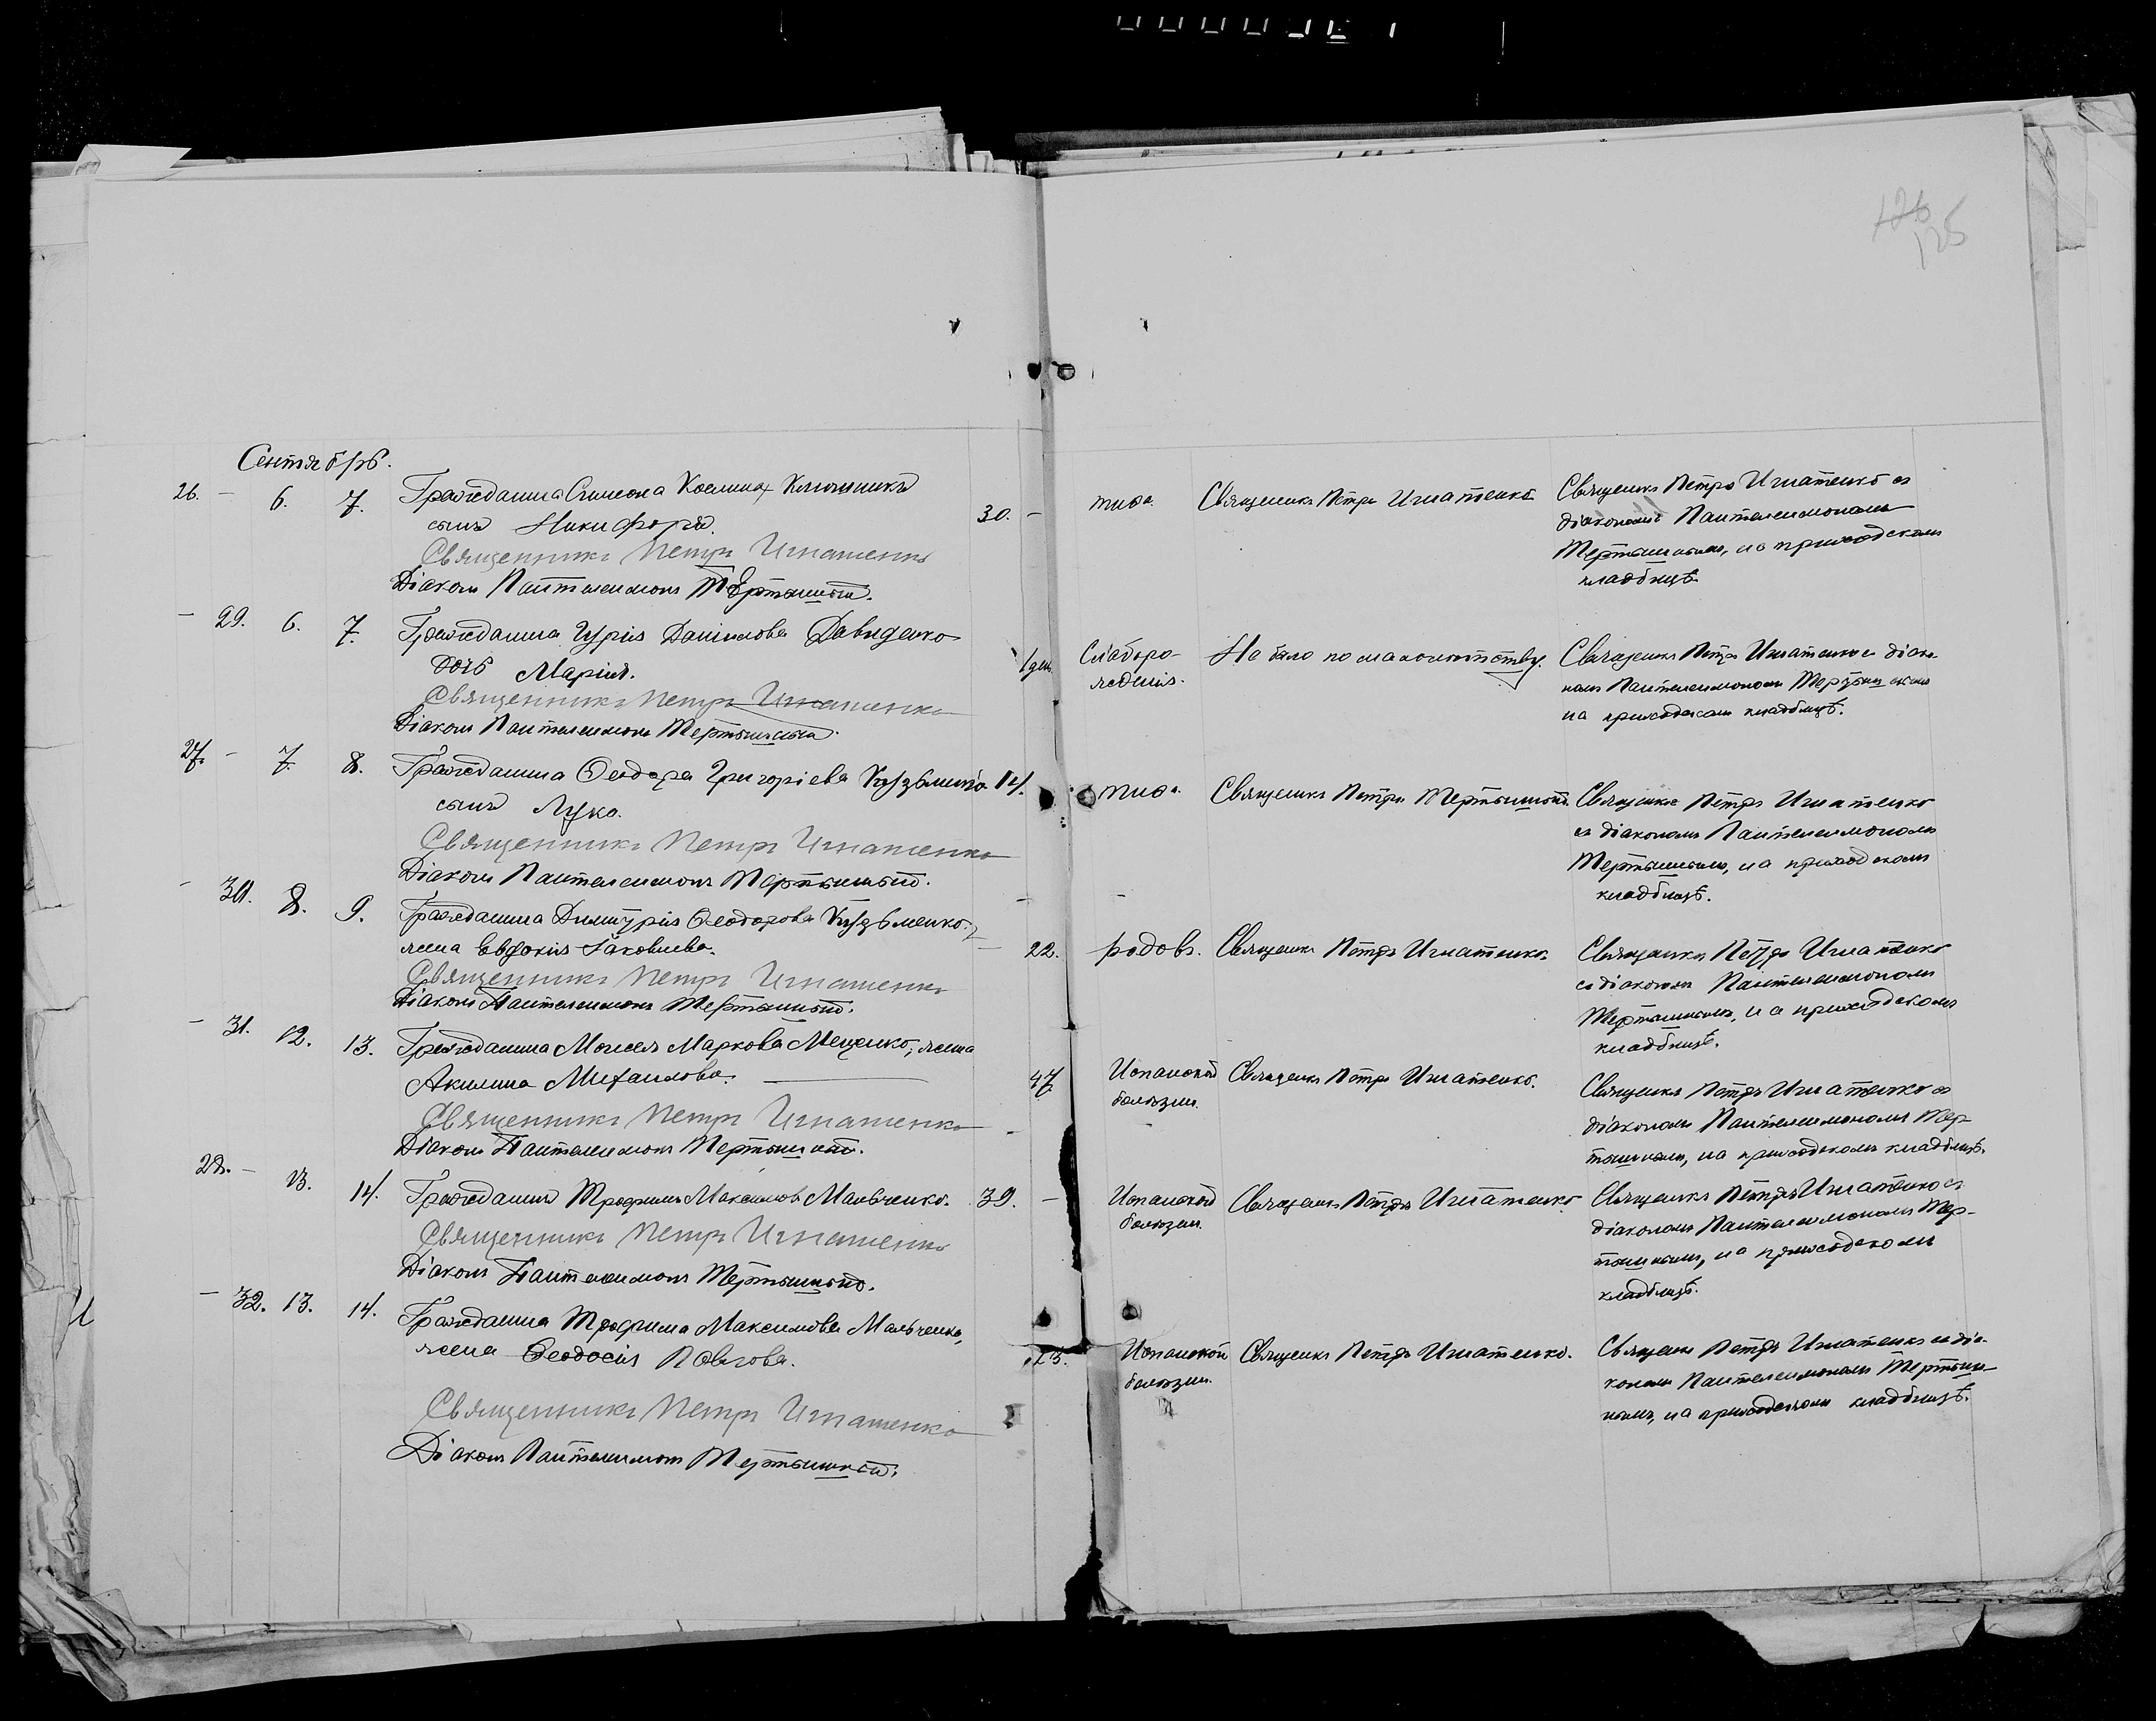 126
125
Сентябрь.
26. — 6. 7. Гражданина Симеона Космина Ключника 30. — тифа. Священникъ Петръ Игнатенко Священникъ Петръ Игнатенко съ
сынъ Никифоръ. діакономъ Пантелеимономъ
Священникъ Петръ Игнатенко Мертышнымъ, на приходскомъ
Діаконъ Пантелеимонъ кладбищѣ.
— 29. 6. 7. Гражданина Гурія Даниилова Давиденко 1 день Слаборо- Не было по малолѣтству. Священникъ Петръ Игнатенко съ діако-
дочь Марія. жденія. номъ Пантелеимономъ
Священникъ Петръ Игнатенко на приходскомъ кладбищѣ.
Діаконъ Пантелеимонъ
27. — 7. 8. Гражданина Ѳеодора Григоріева Кузьменко 14. тифа Священникъ Петръ Священникъ Петръ Игнатенко
сынъ Лука. съ діакономъ Пантелеимономъ
Священникъ Петръ Игнатенко на приходскомъ
Діаконъ Пантелеимонъ кладбищѣ.
— 30. 8. 9. Гражданина Димитрія Ѳеодорова Кузьменко — 22. родовъ. Священникъ Петръ Игнатенко. Священникъ Петръ Игнатенко
жена Евдокія Іаковлева. съ діакономъ Пантелеимономъ
Священникъ Петръ Игнатенко на приходскомъ
Діаконъ Пантелеимонъ кладбищѣ.
— 31. 12. 13. Гражданина Моисея Маркова Мещенко, жена 47 Испанской Священникъ Петръ Игнатенко. Священникъ Петръ Игнатенко съ
Акилина Михаилова. болѣзни. діакономъ Пантелеимономъ
Священникъ Петръ Игнатенко на приходскомъ кладбищѣ.
Діаконъ Пантелеимонъ
28. — 13. 14. Гражданинъ Трофимъ Максимовъ Мальченко. 39. — Испанской Священникъ Петръ Игнатенко Священникъ Петръ Игнатенко съ
Священникъ Петръ Игнатенко болѣзни. діакономъ Пантелеимономъ
Діаконъ Пантелеимонъ на приходскомъ
кладбищѣ.
— 32. 13. 14. Гражданина Трофима Максимова Мальченко, Испанской Священникъ Петръ Игнатенко. Священникъ Петръ Игнатенко съ діа-
жена Ѳеодосія Павлова. болѣзни. кономъ Пантелеимономъ
Священникъ Петръ Игнатенко на приходскомъ кладбищѣ.
Діаконъ Пантелеимонъ